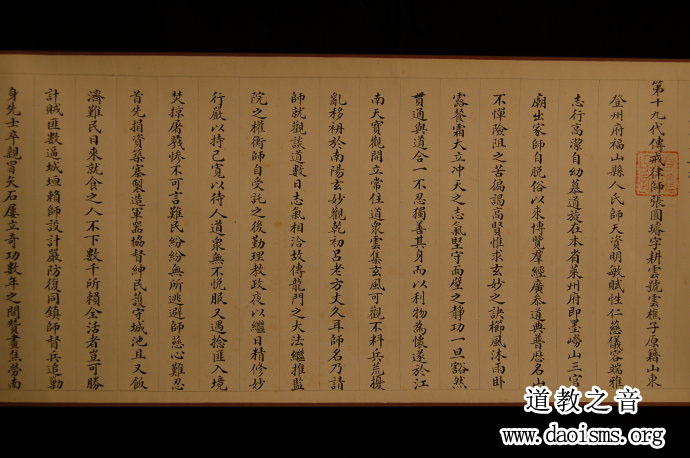 第十九代傳戒律師張圓璿字耕雲號雲樵子原籍山東
登州府福山縣人氏師天資明敏賦性仁慈儀容端雅
志行高潔自幼慕道旋在本省萊州府即墨嶗山三官
廟出家師自脫俗以來博覽羣經廣參道典普歴名山
不憚險阻之苦偏謁高賢惟求玄妙之訣櫛風沐雨卧
露餐霜大立冲天之志氣堅守面壁之靜功一旦豁然
貫通與道合一不忍獨善其身而以利物為懷遂於江
南天寶觀開立常住道衆雲集玄風可觀不料兵荒擾
亂移裯於南陽玄妙觀乾初呂老方丈久耳師名乃請
師就觀談道數日志氣相洽故傳龍門之大法繼推監
院之權衡師自受託之後勤理教政夜以繼日精修妙
行嚴以持己寬以待人道衆無不悅服又遇捻匪入境
焚掠屠戮慘不可言難民紛紛無所逃避師慈心難忍
首先捐資築塞製造軍器協督紳民護守城池且又飯
濟難民日來就食之人不下數千所賴全活者豈可勝
計賊匪數逼城垣賴師設計嚴防復同鎮師督兵追勦
身先士卒親冒矢石屢立奇功數年之間贊畫焦勞南
道教之音
www.daoisms.org